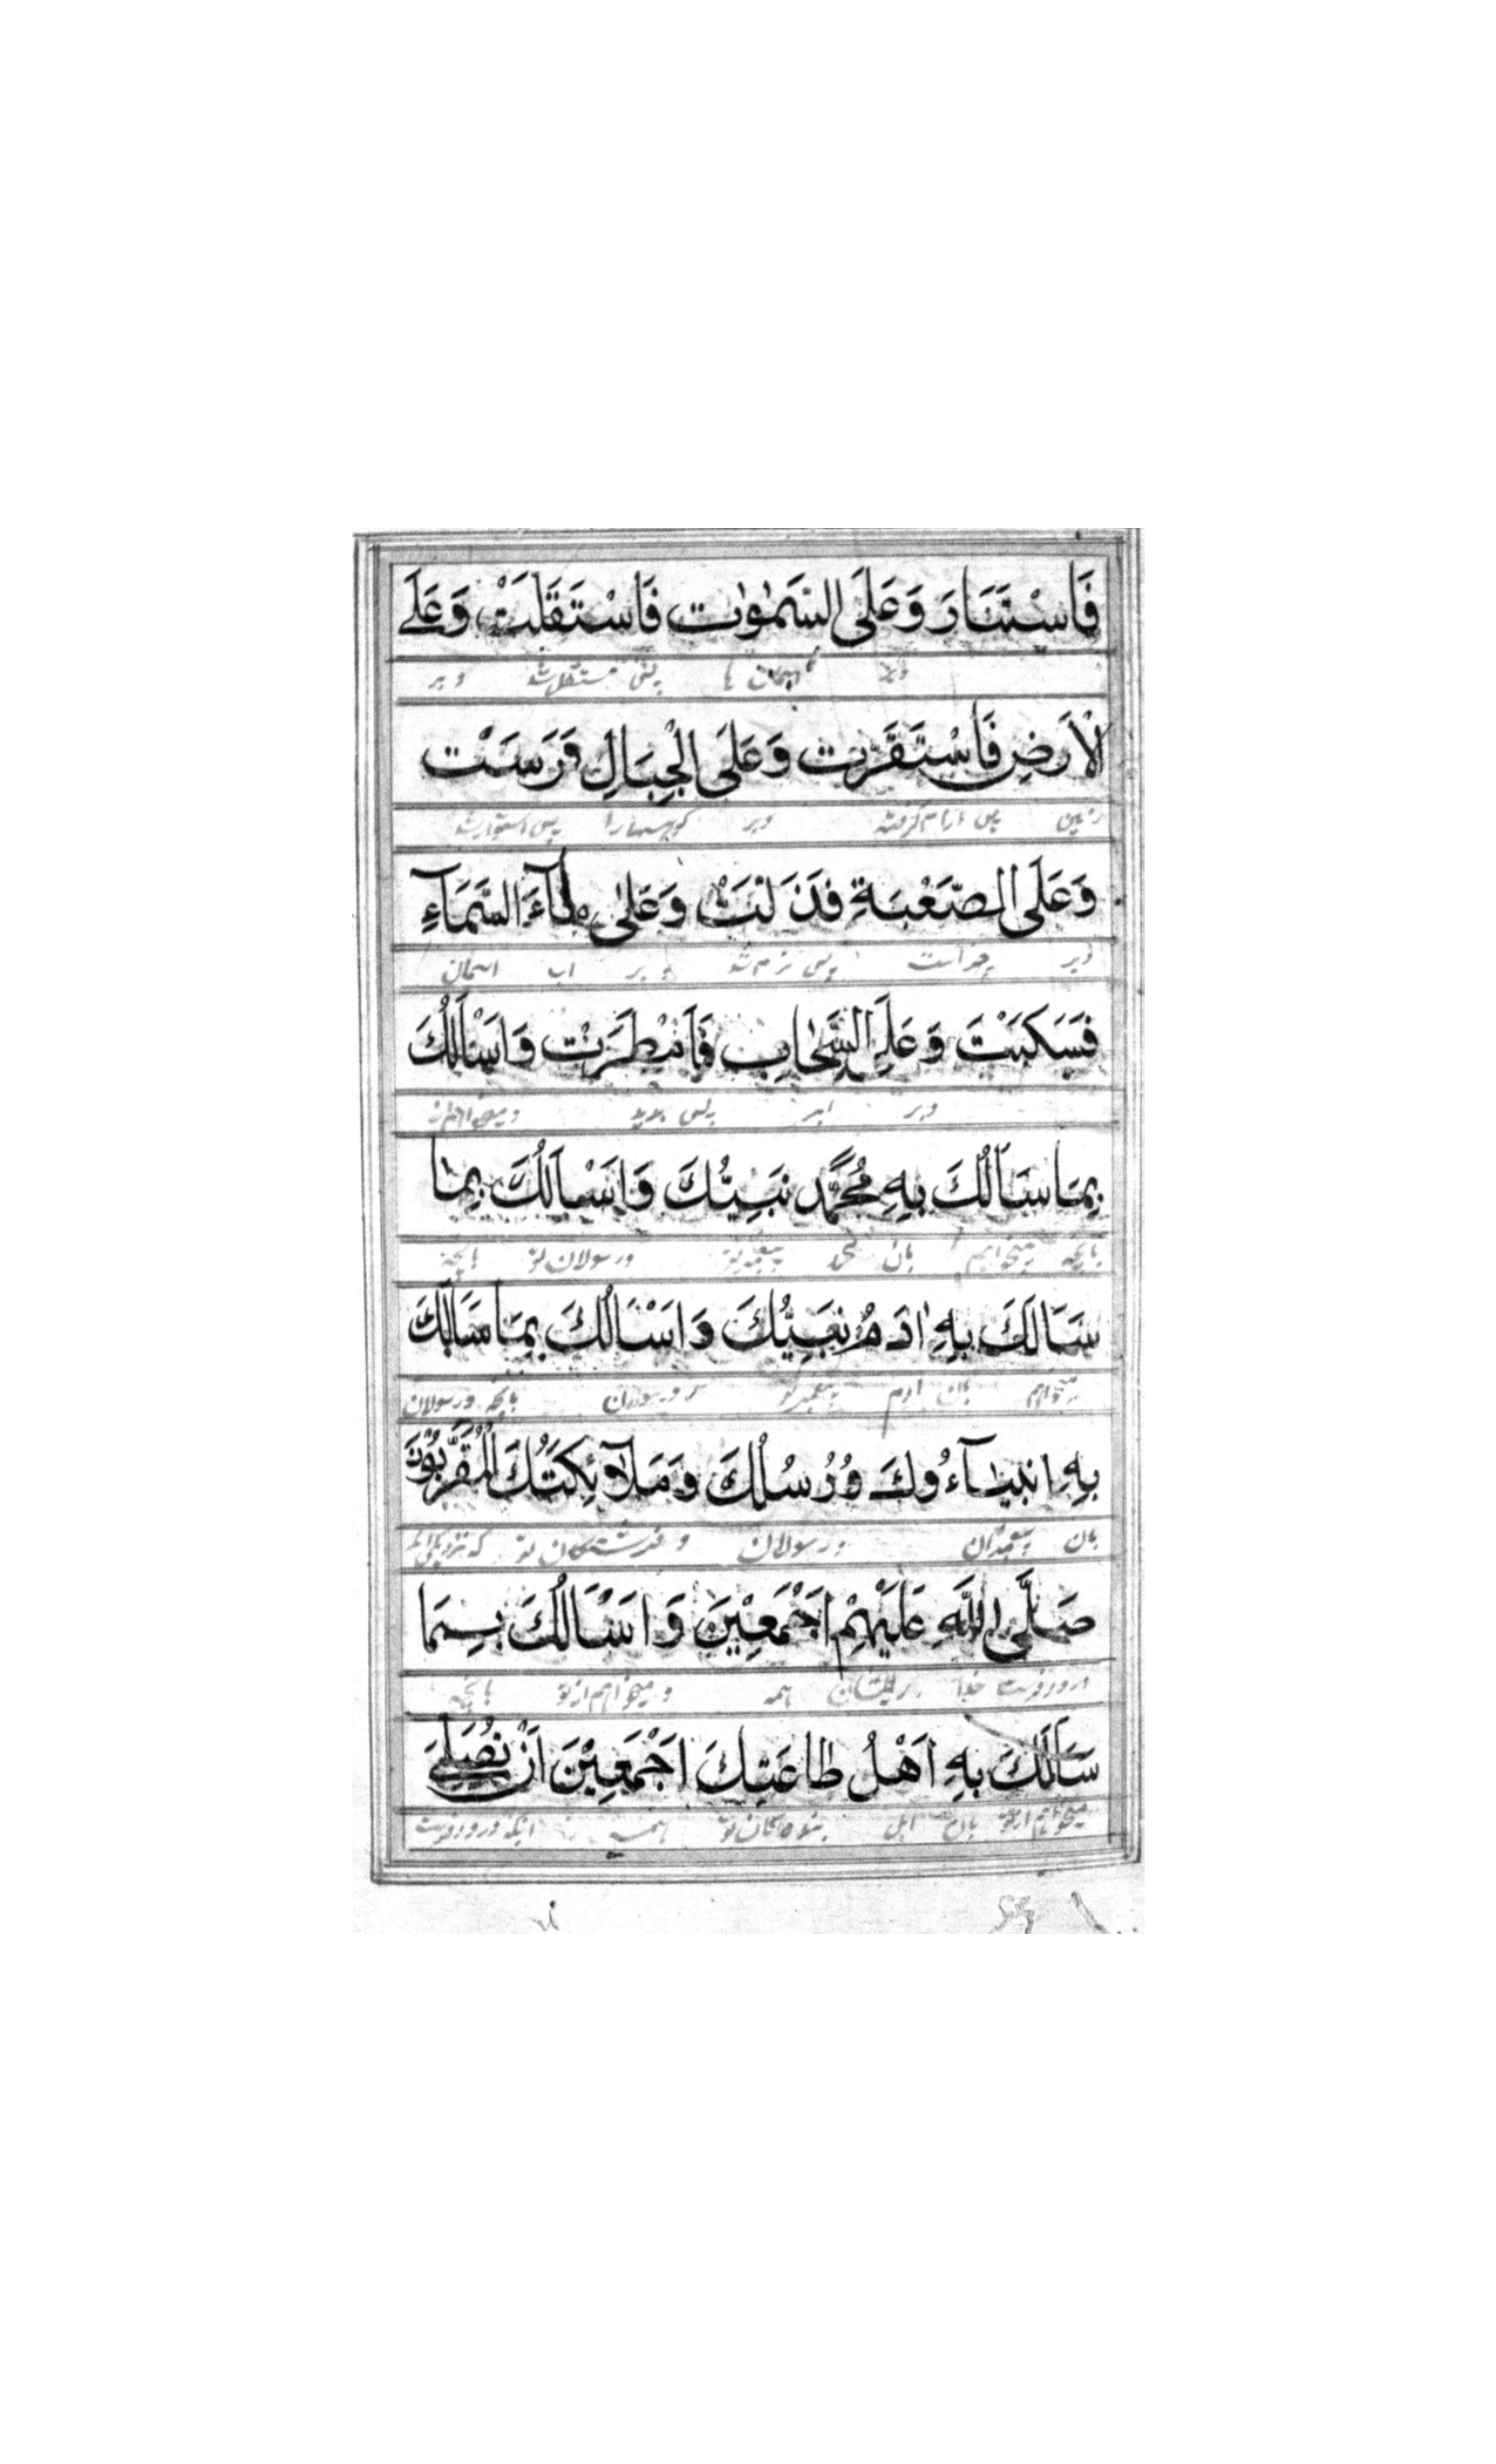 فَاسْتَنَارَ وَعَلَى السَّمٰوٰت فَاسْتَقَلَتْ وَعَلَى
وبر اسمان ها پس مستقل شد و بر
الْاَرَضِ فَاسْتَقَرَت وَعَلَى الْجِبَالِ فَرَسَتْ
زمین پس ارام گرفته وبر کوهها را پس استوار شد
وَعَلَى الصَّعْبَةِ فَذَلَتْ وَعَلٰى مَآءَ السَّمَآءِ
وبر پس نرم شد و بر اب اسمان
فَسَكَبَتْ وَعَلَى السَّحٰابِ فَاَمْطَرَتْ وَاَسْاَلُكَ
وبر ابر پس
بِمَا سَاَلُكَ بِهِ مُحَمَّد نَبِيُّكَ وَاَسْاَلُكَ بِمٰا
بانچه میخواهم بان محمد پیغمبر تو ورسولان تو بانچه
سَاَلَكَ بِهِ اٰدَمُ نَبِيُّكَ وَاَسْاَلُكَ بِمَا سَاَلَكَ
میخواهم بان ادم پیغمبر تو ورسولان بانچه ورسولان
بِهِ انبيٰآءُوكَ وُرُسُلُكَ وَمَلآئِكَتُكَ الْمُقَرَّبُوْنَ
بان پیغمبران ورسولان و فرشتگان تو که
صَلَّى اللّٰهِ عَلَيْهِمْ اَجْمَعِيْنَ وَاَسْاَلُكَ بِمَا
ورود فرست خدا همه ومیخواهم از تو بانچه
سَاَلَكَ بِهِ اَهْلُ طٰاعَتِكَ اَجْمَعِيْنَ اَنْ تُصَلِّىَ
میخواهم از تو بان اهل همه انکه ورود فرست